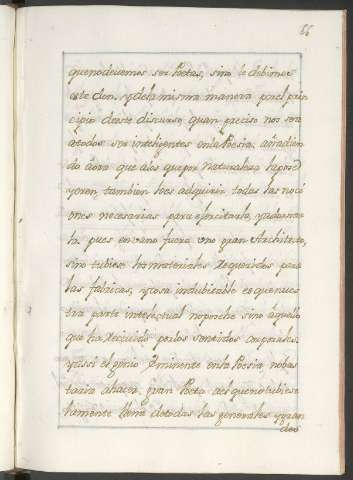 66
que no devemos ser Poetas, sino le debimos
este don. y dela misma manera por el prin
cipio deeste discurso, quan preciso nos sera
atodos ser inteligentes en la Poesia, añadien
do âora que alos que por Naturaleza la pose
yeren, tambien les adquirir todas las noci
ones necesarias para ejercitarla, y adornar
la. pues en vano fuera uno gran Architecto,
sino tubiese los materiales requeridos para
las fabricas, y cosa indubitable es que nues
tra parte intelectual no produce sino aquello
que ha recivido por los sentidos corporales.
y assi el genio eminente en la Poesia, no bas
taria a hacer gran Poeta a el que no tubiese
la mente llena de todas las generales y gran
des